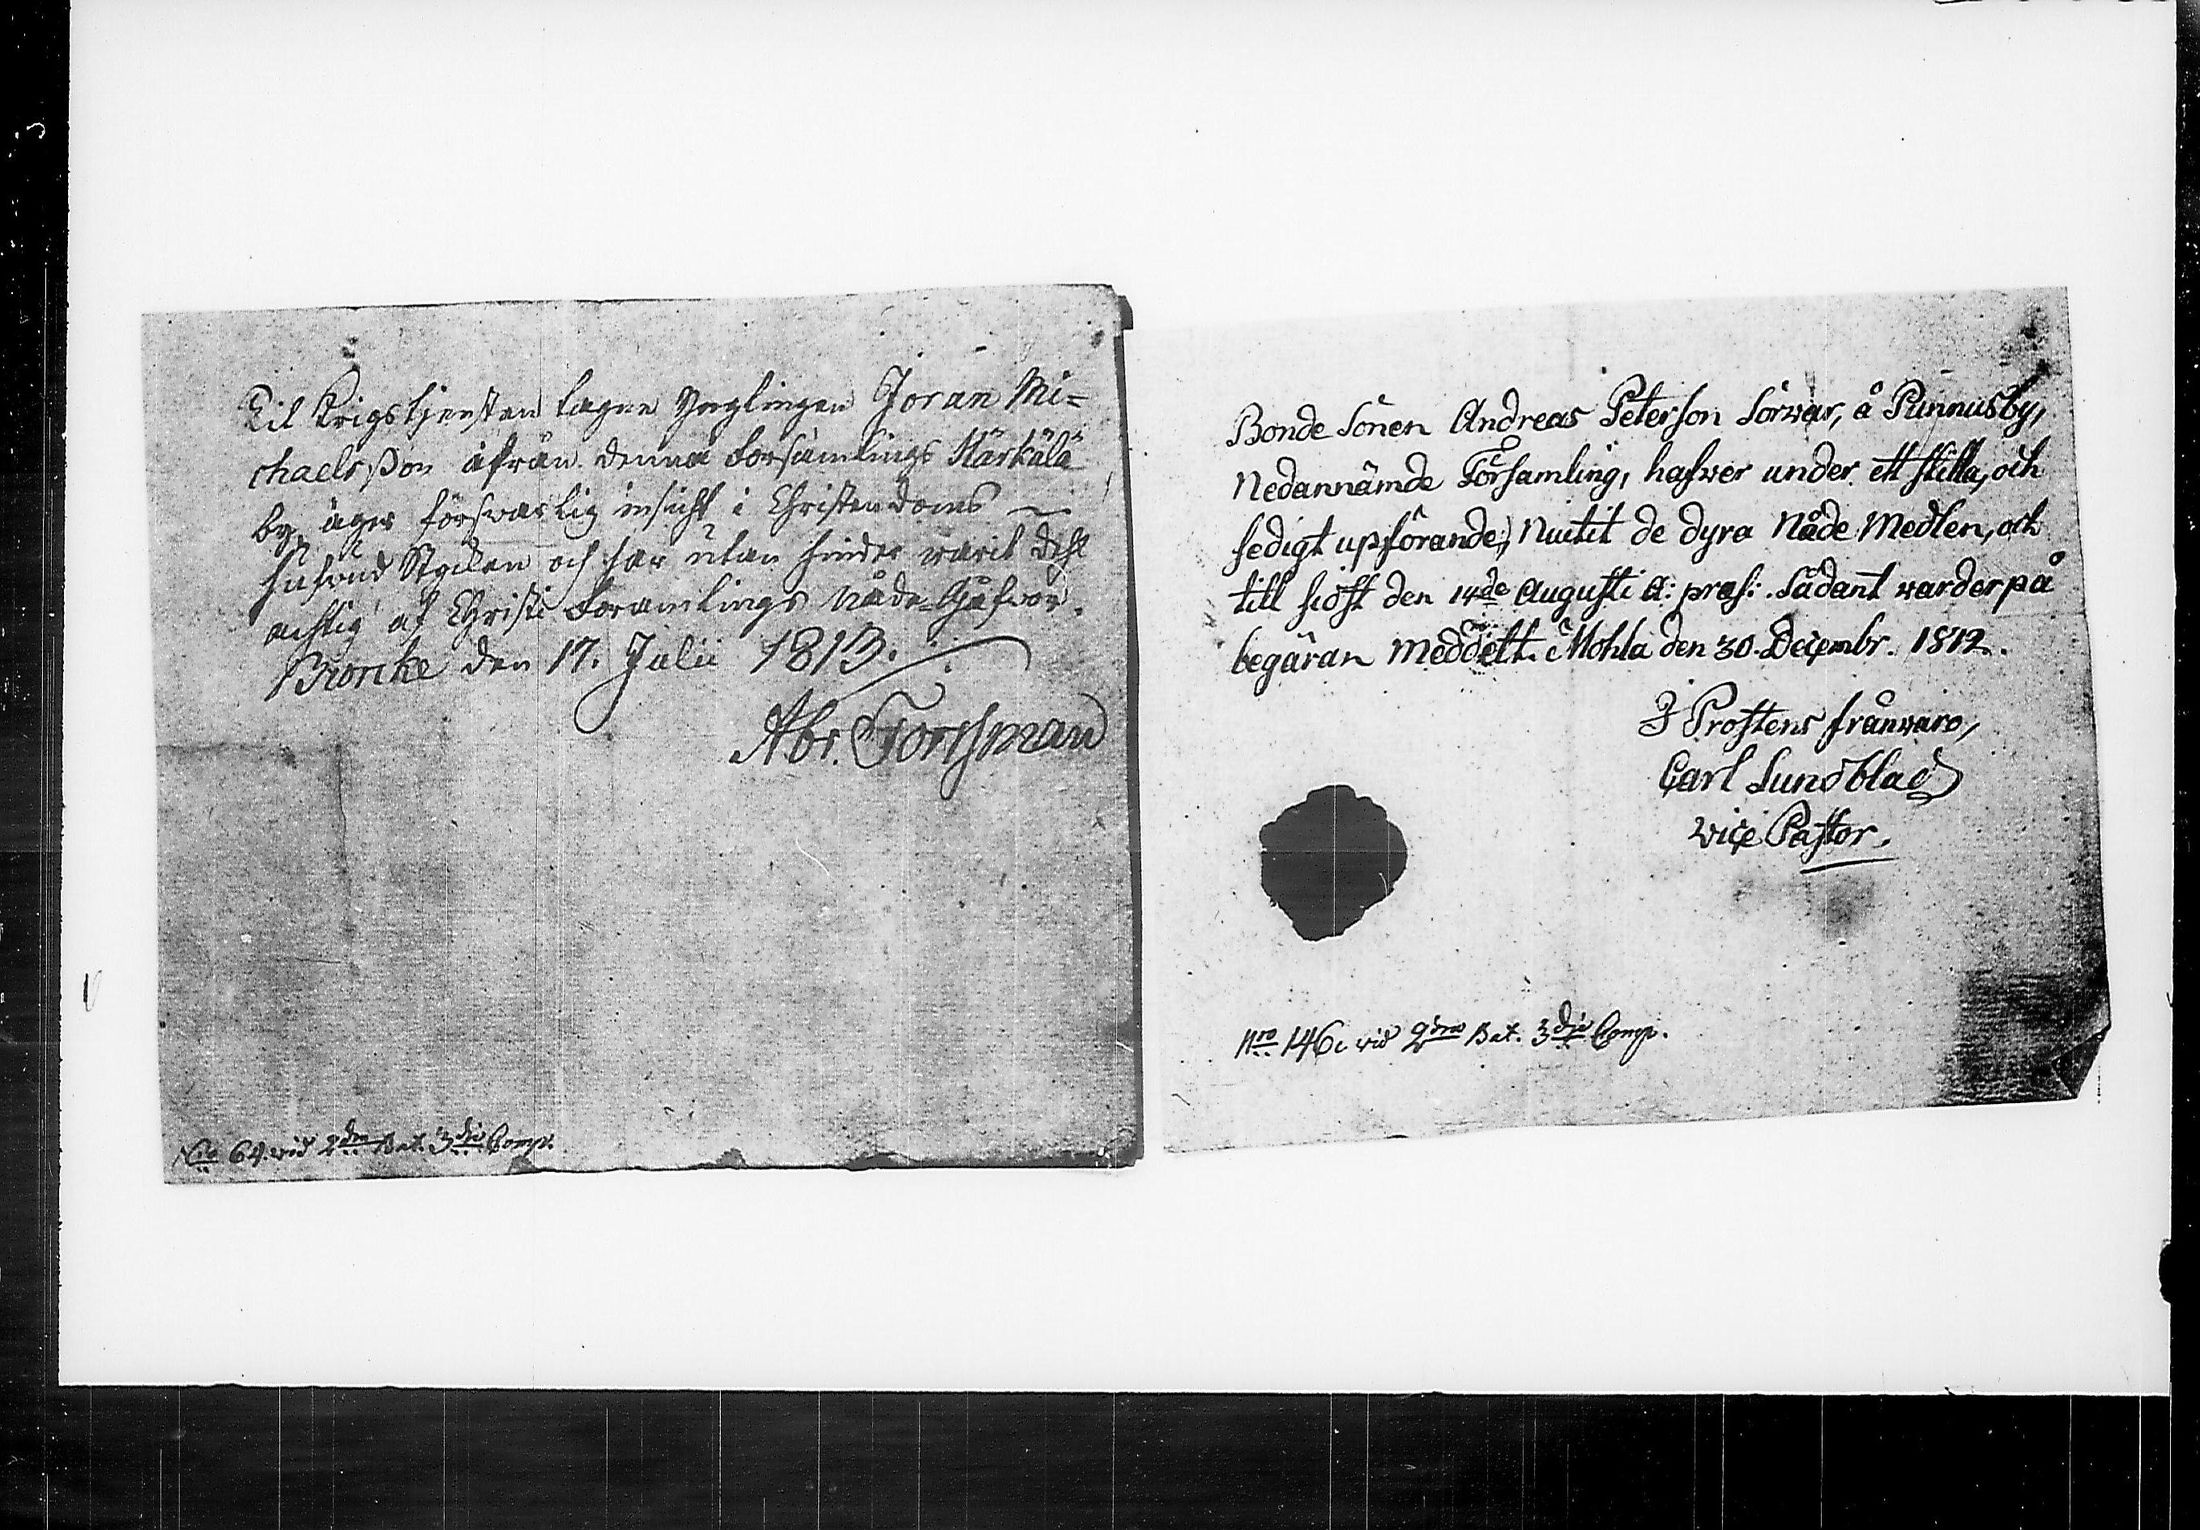 Til Krigstjensten tagne Ynglingen Joran Mi=
chaelsson ifrån denna Församlings Härkälä
by, äger försvarlig insicht i Christendoms
hufvud Stycken och har utan hinder warit dehl
achtig af Christi Foramlings Nåde-Gåfvor.
den 17. Julii 1813.
Abr. Forssman
Nro 64. vid 2dra Bat. 3dje Comp.
Bonde Sonen Andreas Peterson Sorwar, å Punnusby,
Nedannämde Församling, hafwer under ett stilla, och
sedigt upförande, Nuttit de dyra Nåde Medlen, och
till sidst den 14de Augusti A: præs: Sådant warder på
begäran meddelt. Mohla den 30. Decembr. 1812.
I Prostens frånwaro,
Carl Lundblad
vice Pastor.
Nro 146. vid 2dra Bat. 3dje Comp.